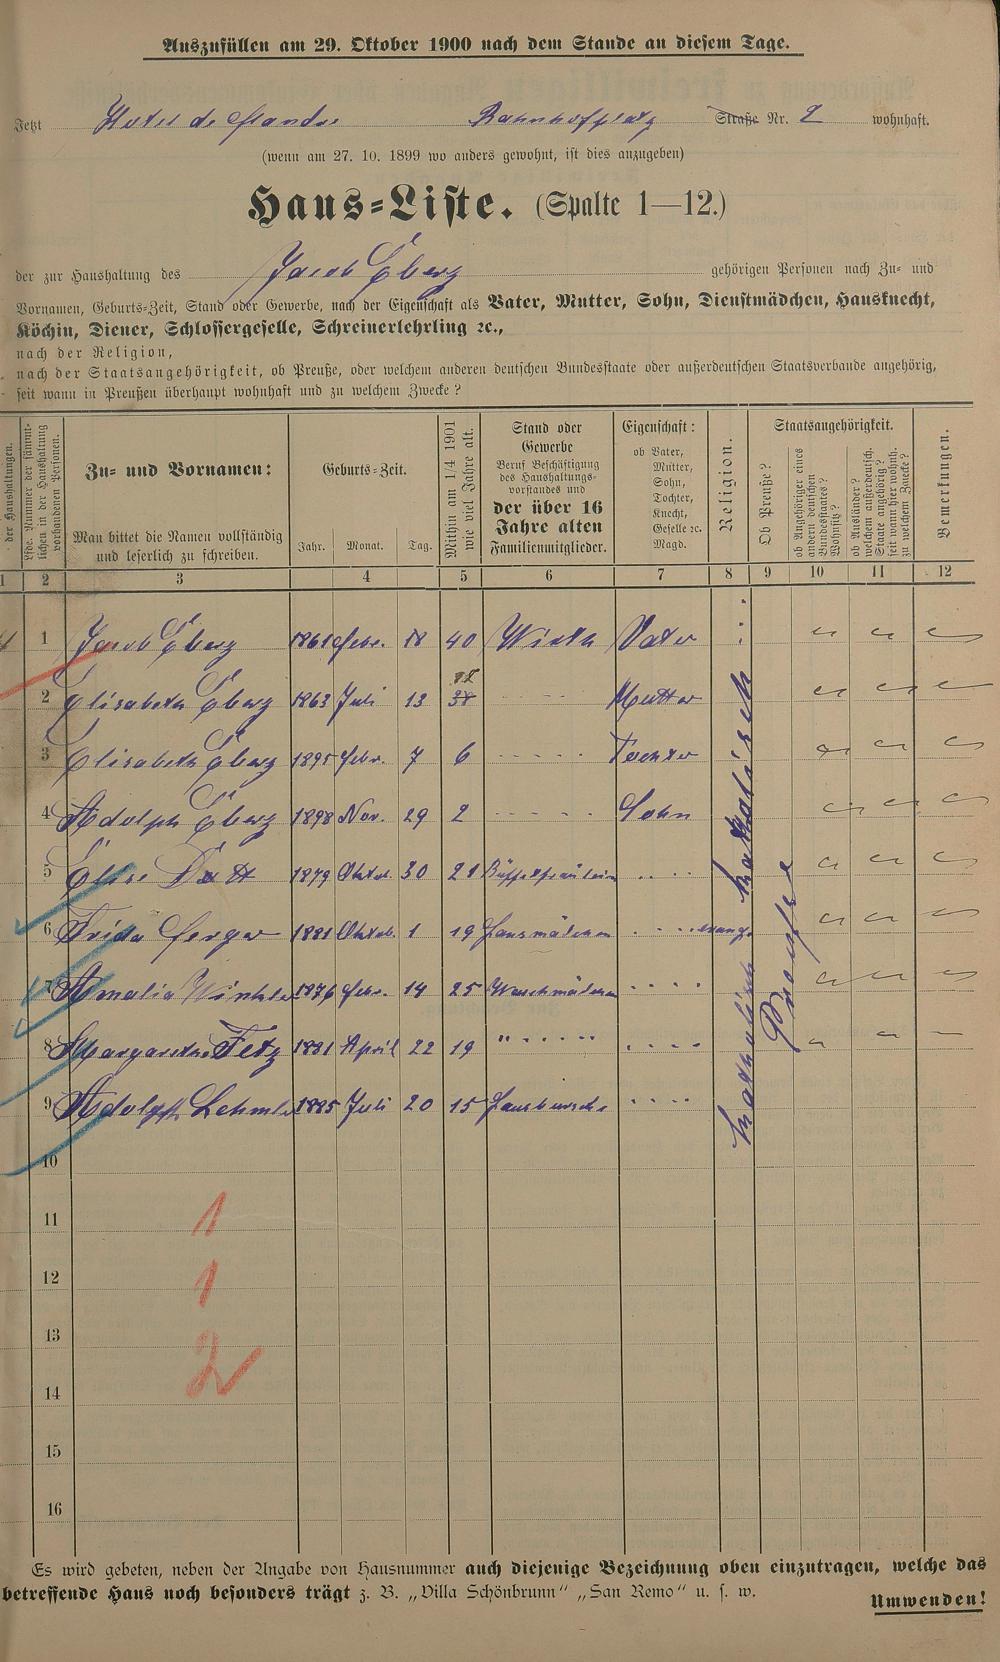 Auszufüllen am 29. Oktober 1900 nach dem Stande an diesem Tage.
Jetzt Hotel de Flandre Bahnhofplatz Straße Nr. 2 wohnhaft.
(wenn am 27. 10. 1899 wo anders gewohnt, ist dies anzugeben)
Haus-Liste. (Spalte 1—12.)
der zur Haushaltung des Jacob Eberz gehörigen Personen nach Zu- und
Vornamen, Geburts-Zeit, Stand oder Gewerbe, nach der Eigenschaft als Vater, Mutter, Sohn, Dienstmädchen, Hausknecht,
Köchin, Diener, Schlossergeselle, Schreinerlehrling ꝛc.,
nach der Religion,
nach der Staatsangehörigkeit, ob Preuße, oder welchem anderen deutschen Bundesstaate oder außerdeutschen Staatsverbande angehörig,
seit wann in Preußen überhaupt wohnhaft und zu welchem Zwecke?
der Haushaltungen.
Lfde. Nummer der sämmt-
lichen in der Haushaltung
vorhandenen Personen.
Zu- und Vornamen:
Man bittet die Namen vollständig
und leserlich zu schreiben.
Geburts-Zeit.
Jahr. Monat. Tag.
Mithin am 1/4 1901
wie viel Jahre alt.
Stand oder
Gewerbe
Beruf Beschäftigung
des Haushaltungs-
vorstandes und
der über 16
Jahre alten
Familienmitglieder.
Eigenschaft:
ob Vater,
Mutter,
Sohn,
Tochter,
Knecht,
Geselle ꝛc.
Magd.
Religion.
Staatsangehörigkeit.
Ob Preuße?
ob Angehöriger eines
andern deutschen
Bundesstaates?
Wohnsitz?
ob Ausländer?
welchem außerdeutsch.
Staate angehörig?
seit wann hier wohnh.
zu welchem Zwecke?
Bemerkungen.
1 2 3 4 5 6 7 8 9 10 11 12
1 Jacob Eberz 1861 Febr. 18 40 Wirth Vater
2 Elisabeth Eberz 1863 Juli 13 Mutter
3 Elisabeth Eberz 1895 Febr. 7 6 Tochter
4 Adolph Eberz 1898 Nov. 29 2 Sohn
5 Elise 1879 Oktob. 30 21 Büffetfräulein
6 Frida Gerger 1881 Oktob. 1 19 Hausmädchen evang.
7 Amalia Winkler 1876 Febr. 14 25 Waschmädchen
8 Margaretha Fetz 1881 April 22 19 "
9 Adolph 1885 Juli 20 15 Hausbursche
katholisch
katholisch
Preuße
10
11 1
12 1
13
14 2
15
16
Es wird gebeten, neben der Angabe von Hausnummer auch diejenige Bezeichnung oben einzutragen, welche das
betreffende Haus noch besonders trägt z. B. „Villa Schönbrunn" „San Remo" u. s. w.
Umwenden!